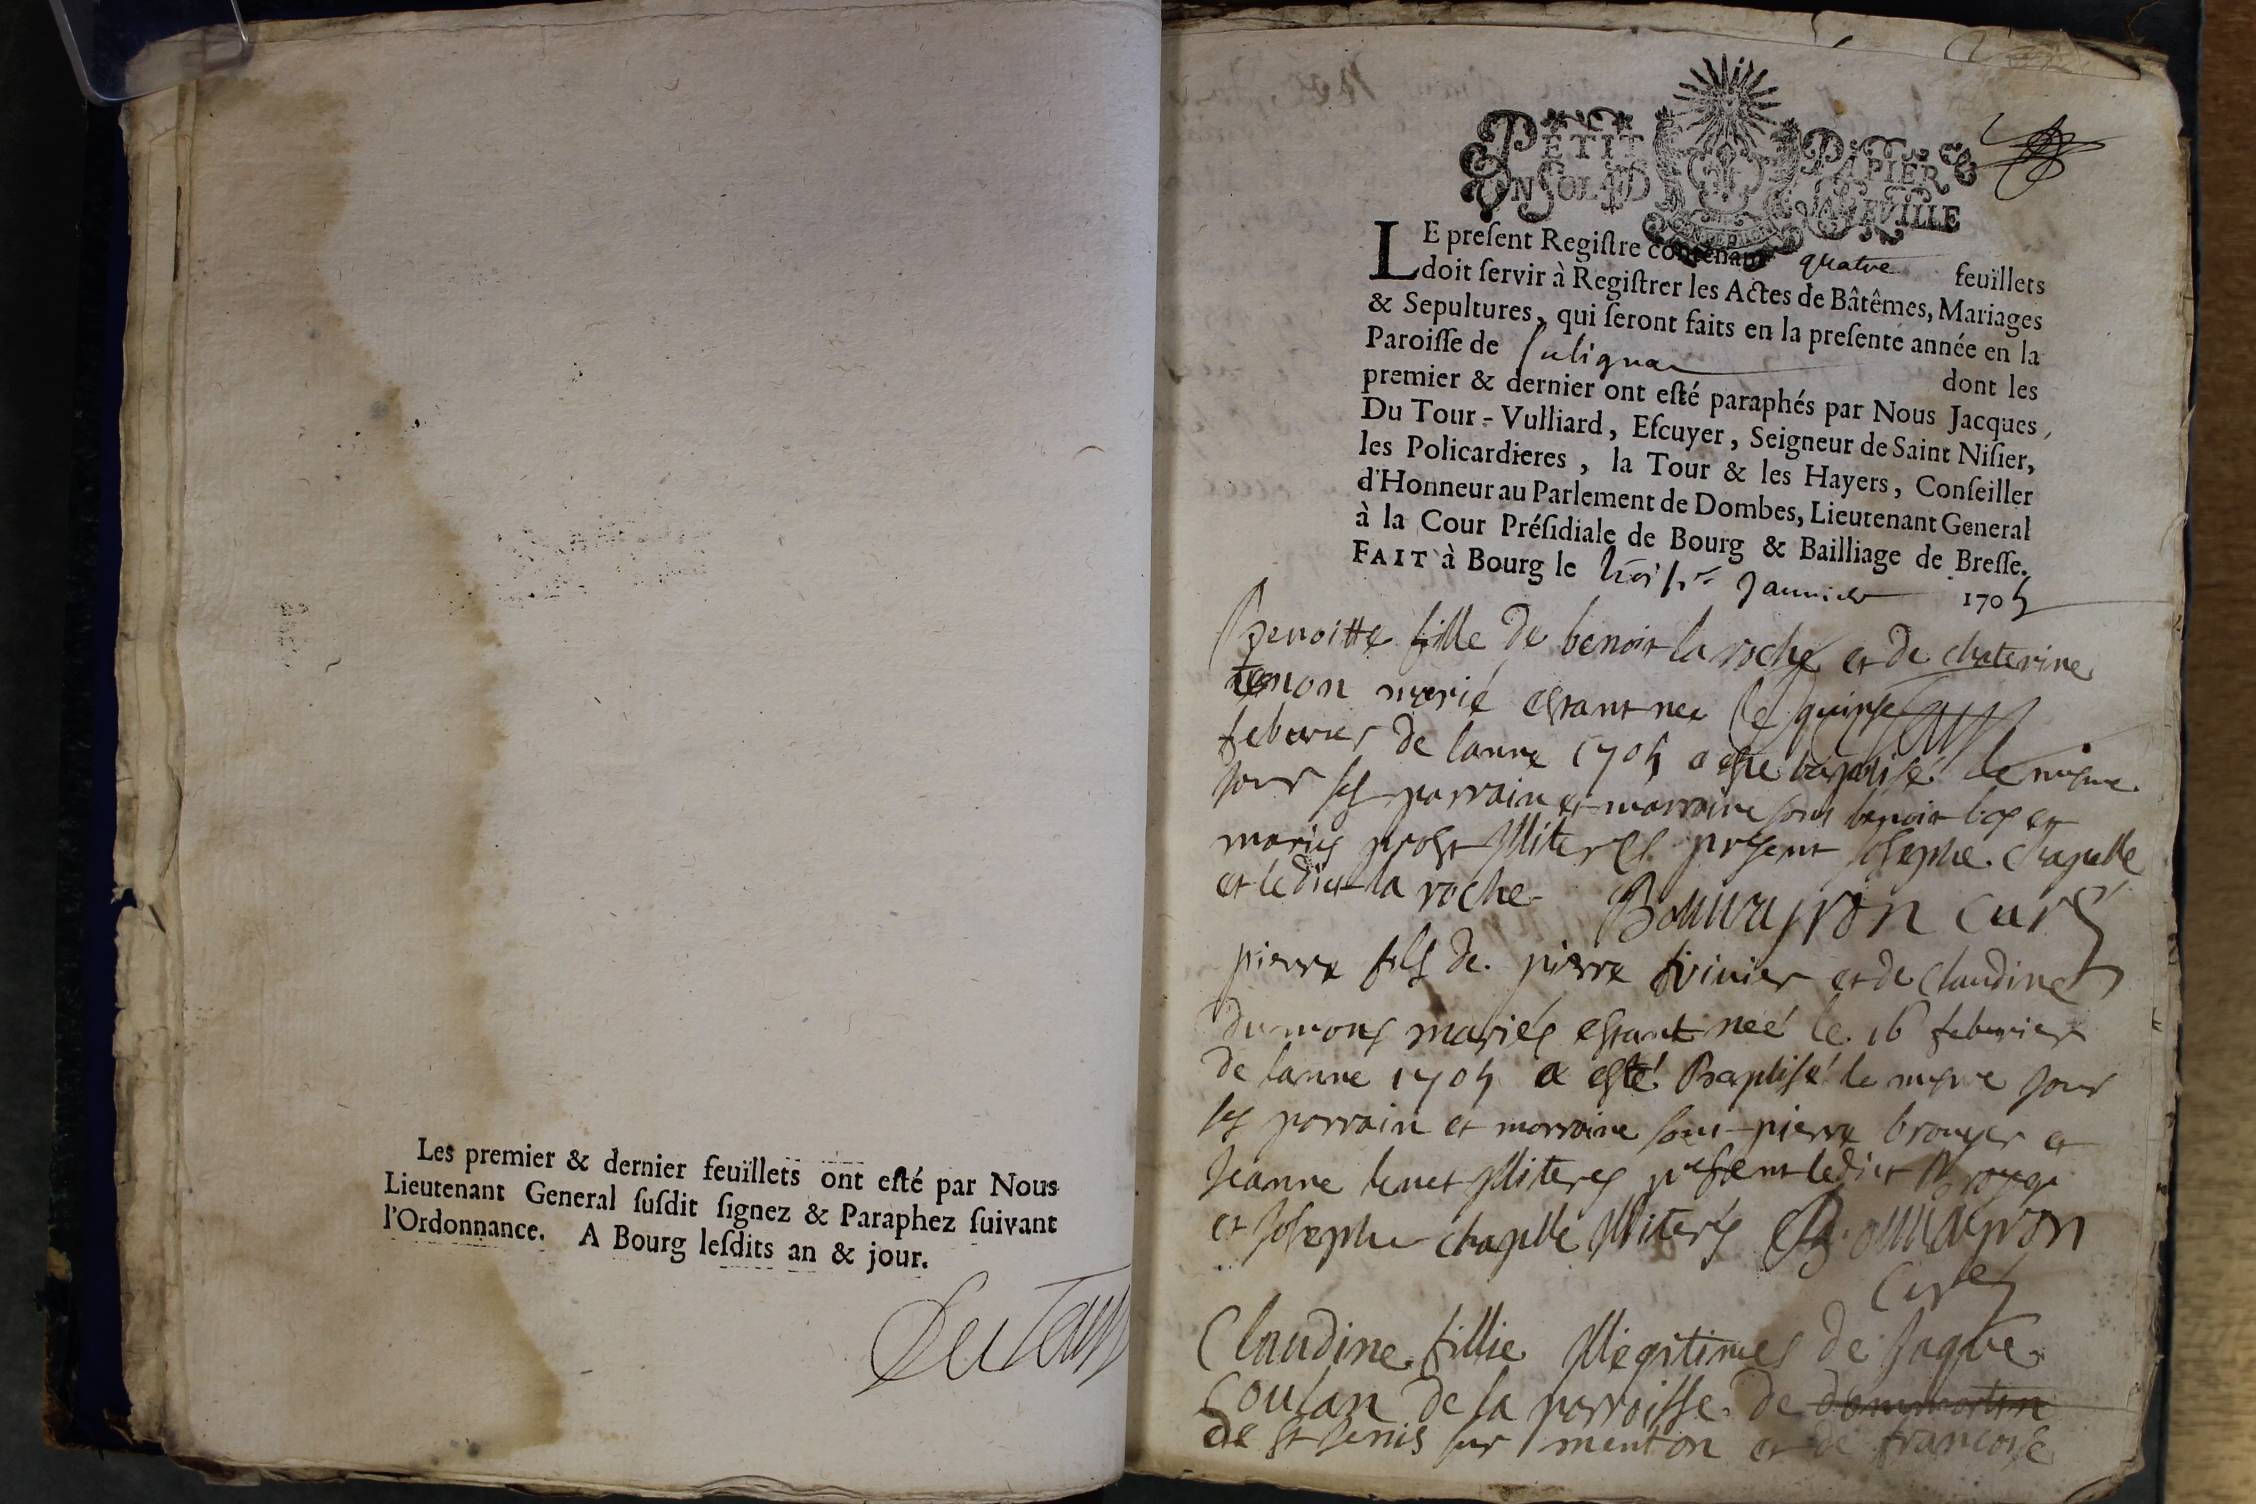 Les premier & dernier feuïllets ont esté par Nous
Lieutenant General susdit signez & Paraphez suivant
l'Ordonnance. A Bourg lesdits an & jour.
DuTour
PETIT PAPIER
UN SOL LA FEUILLE
LE present Registre contenant quatre feuïllets
doit servir à Registrer les Actes de Bâtêmes, Mariages
& Sepultures, qui seront faits en la presente année en la
Paroisse de Sulignat dont les
premier & dernier ont esté paraphés par Nous Jacques
Du Tour-Vulliard, Escuyer, Seigneur de Saint Nisier,
les Policardieres, la Tour & les Hayers, Conseiller
d'Honneur au Parlement de Dombes, Lieutenant General
à la Cour Présidiale de Bourg & Bailliage de Bresse.
FAIT à Bourg le Janvier 1705
benoitte fille de benoit la roche et de chaterine
tenon marié estant nee le quinse
febvrier de lanne 1705 a esté baptisé le mesme
jour ses parrain et marraine sont benoit et
maries prost illiteres present josephe chapelle
et ledict la roche Bouvayron curé
pierre fils de pierre et de Claudine
dumons mariés estant neé le 16 febvrier
de lanne 1705 a esté Baptisé le mesme jour
ses parrain et marraine sont pierre brouyer et
jeanne illiteres present ledict
et josephe chapelle illiterés Bouvayron
curé
Claudine fillie illegitimes de jaque
coulan de la parroisse de dommartin
de st jenis sur menton et de francoise